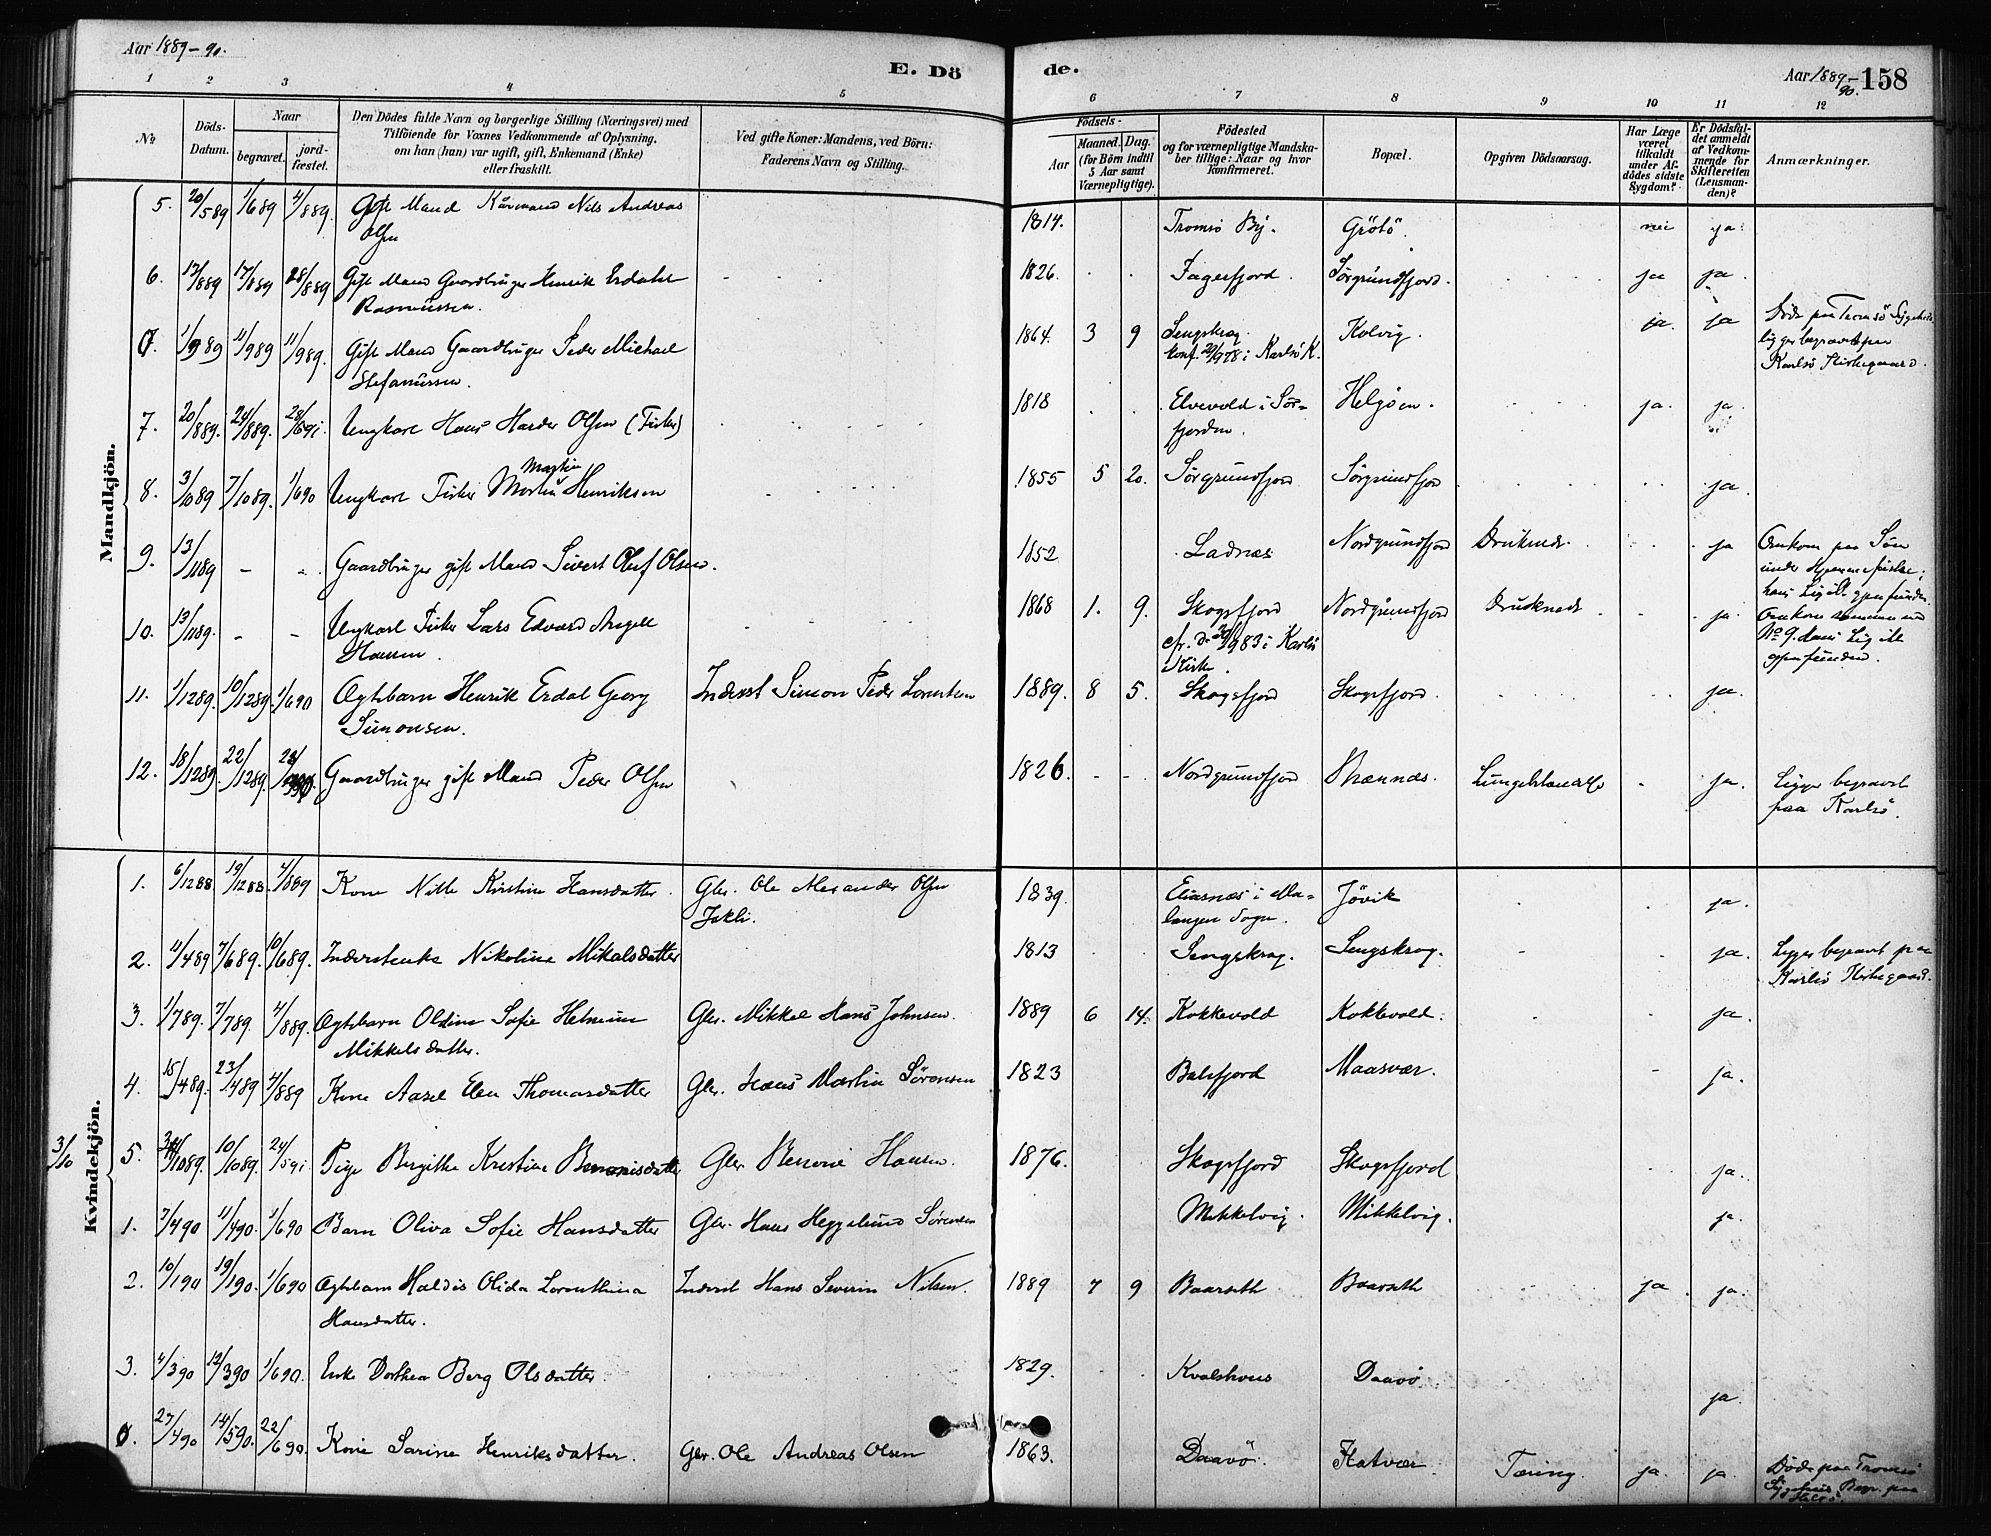 Aar 1889-90.
E. Dö
de.
Aar 1889-90.
158
1 2 3 4 5 6 7 8 9 10 11 12
No
Döds-Datum.
Naar
begravet.
jord-fæstet.
Den Dödes fulde Navn og borgerlige Stilling (Næringsvei) med
Tilföiende for Voxnes Vedkommende af Oplysning,
om han (hun) var ugift, gift, Enkemand (Enke)
eller fraskilt.
Ved gifte Koner: Mandens, ved Börn:
Faderens Navn og Stilling.
Födsels-
Aar
Maaned. Dag.
(for Börn indtil
5 Aar samt
Værnepligtige).
Födested
og for værnepligtige Mandska-
ber tillige: Naar og hvor
konfirmeret.
Bopæl.
Opgiven Dödsaarsag.
Har Læge
været
tilkaldt
under Af-
dödes sidste
Sygdom?
Er Dödsfal-
det anmeldt
af Vedkom-
mende for
Skifteretten
(Lensman-
den)?
Anmærkninger.
Mandkjön.
5. 20/5 89 1/6 89 4/8 89. Gift Mand Kårmand Nils Andreas 1814. Tromsö By. Grötö. nei ja.
Olsen
6. 17/8 89 28/8 89 Gift Mand Gaardbruger Henrik Erdahl 1826. Fagerfjord. Sörgrundfjord. ja ja
Rasmussen.
0. 1/9 89 11/9 89 11/9 89. Gift Mand Gaardbruger Peder Michael 1864. 3 9 Lengskrog. Kolvig. ja. ja Döde paa Tromsö Sygehus
Stefanussen. konf. 29/9 78 i Karlsö K. ligger begravet paa
Karlsö Kirkegaard.
7. 20/8 89. 24/8 89. 28/6 91 Ungkarl Hans Harder Olsen (Fisker) 1818 Elvevold i Sör- Helgöen. ja. ja.
fjorden.
8. 3/10 89 7/10 89. 1/6 90 Ungkarl Fisker Martin Henriksen 1855 5 20. Sörgrundfjord Sörgrundfjord ja.
9. 13/11 89 - - Gaardbruger gift Mand Sivert Oluf Olsen. 1852 Ladnæs Nordgrundfjord Druknede. ja Omkom paa Söen
under Hjemmefiske;
hans Lig ikke gjenfunden.
10. 13/11 89. - - Ungkarl Fisker Lars Edvard Angell 1868 1. 9. Skogsfjord Nordgrundfjord Druknede ja. Omkom sammen med
Hansen. No 9. Hans Lig ikke
i Karlsö Kirke. gjenfunden.
11. 1/12 89. 10/12 89. 1/6 90 Ægtebarn Henrik Erdal Georg Inderst Simon Peder Lorentsen 1889. 8 5. Skogsfjord Skogsfjord ja.
Simonsen.
12. 18/12 89. 22/12 89. Gaardbruger gift Mand Peder Olsen 1826. Nordgrundfjord Brænnæs. Lungebetændelse ja. Ligger begravet
paa Karlsö.
Kvindekjön.
1. 6/12 88 19/12 88. 4/8 89 Kone Nille Kirstine Hansdatter. Gbr. Ole Alexander Olsen 1839. Eliasnæs i Ma- Jövik ja.
Jækli. langen Sogn.
2. 11/4 89 7/6 89. 10/6 89. Inderstenke Nikoline Mikalsdatter 1813 Lengskrog. Lengskrog. ja. Ligger begravet paa
Karlsö Kirkegaard.
3. 1/7 89. 7/7 89. 4/8 89. Ægtebarn Oldine Sofie Helmine Gbr. Mikkel Hans Johnsen. 1889 6 14. Kokkevold Kokkevold. ja.
Mikkelsdatter.
4. 15/4 89. 23/4 89 4/8 89 Kone Aasel Elen Thomasdatter Gbr. Hans Martin Sörensen 1823 Balsfjord Maasvær. ja.
3/10 5. 10/10 89. 24/5 91. Pige Birgithe Kristine Benonisdatter Gbr Benoni Hansen. 1876. Skogsfjord Skogsfjord ja.
1. 7/4 90 11/4 90. 1/6 90 Barn Oliva Sofie Hansdatter Gbr. Hans Heggelund Sörensen Mikkelvig. Mikkelvig. ja.
2. 10/1 90 19/1 90. 1/6 90 Ægtebarn Haldis Olida Lorenthina Inderst Hans Severin Nilsen. 1889 7 9 Baarseth Baarseth ja. ja.
Hansdatter.
3. 4/3 90 12/3 90 1/6 90. Enke Dorthea Berg Olsdatter. 1829. Kvalshaus Daavö. ja.
0. 27/4 90 14/5 90. 22/6 90. Kone Sarine Henriksdatter. Gbr. Ole Andreas Olsen 1863. Daavö. Flatvær. Tæring. ja. ja. Döde paa Tromsö
Sygehus Begr. paa
Helgö.